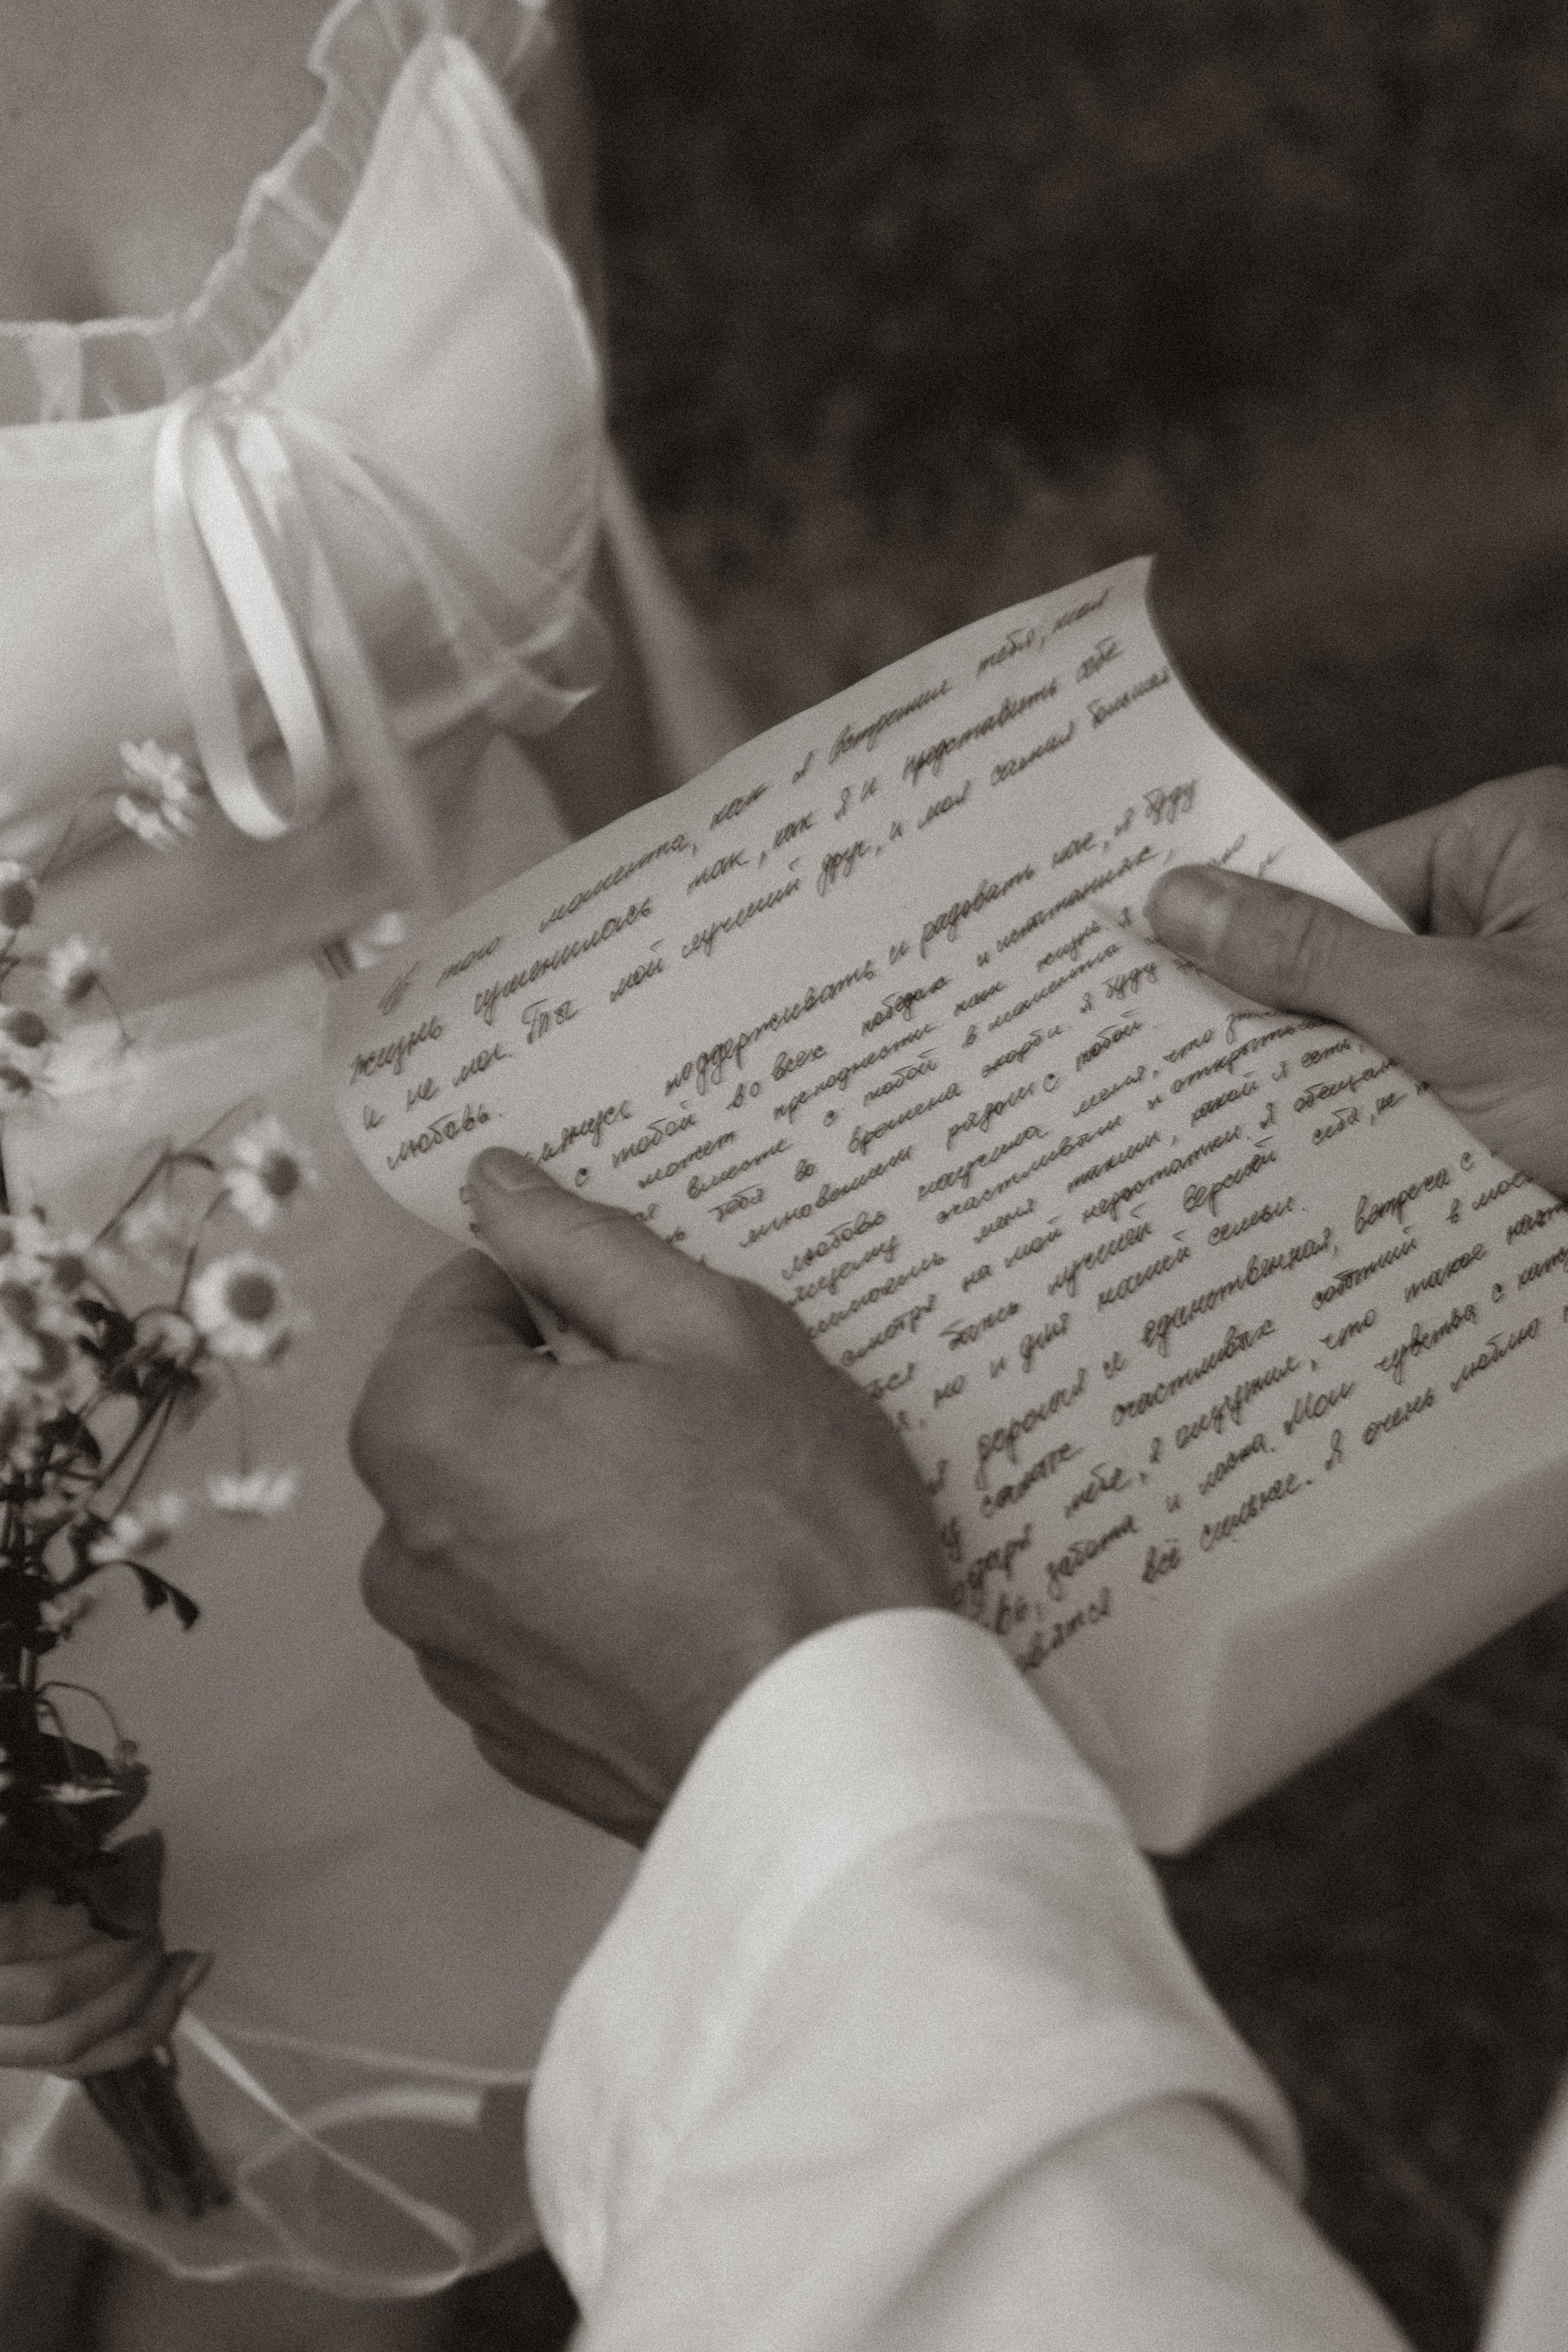 С того момента, как я встретил тебя, моя
жизнь изменилась так, как я и представить себе
и не мог. Ты мой лучший друг, и моя самая большая
любовь.
поддерживать и радовать как, я буду
с тобой во всех победах и испытаниях,
может преподнести нам жизнь. Я
вместе с тобой в моменты
тебя во времена скорби. Я буду
мгновении рядом с тобой.
любовь научила меня, что
счастливым и открытым
меня таким, какой я есть,
смотря на мои недостатки. Я обещаю
быть лучшей версией себя, не
но и для нашей семьи.
дорогая и единственная, встреча с
самых счастливых событий в моей
тебе, я ощутил, что такое
забота и ласка. Мои чувства с
всё сильнее. Я очень люблю